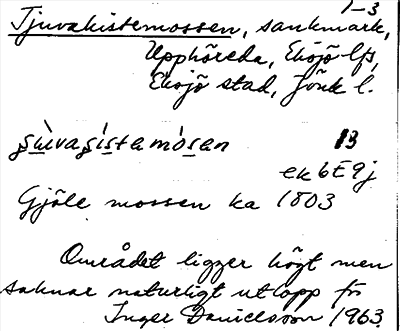 1-3
Tjuvakistemossen, sankmark,
Upphöreda, Eksjö lfs,
Eksjö stad, Jönk l.
13
ek 6E9j
Gjöle mossen ka 1803
Området ligger högt men
saknar naturligt utlopp fr
Inger Danielsson 1963